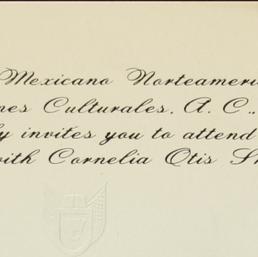 Mexicano Norteameri
nes Culturales, A. C.,
y invites you to attend
with Cornelia Otis S